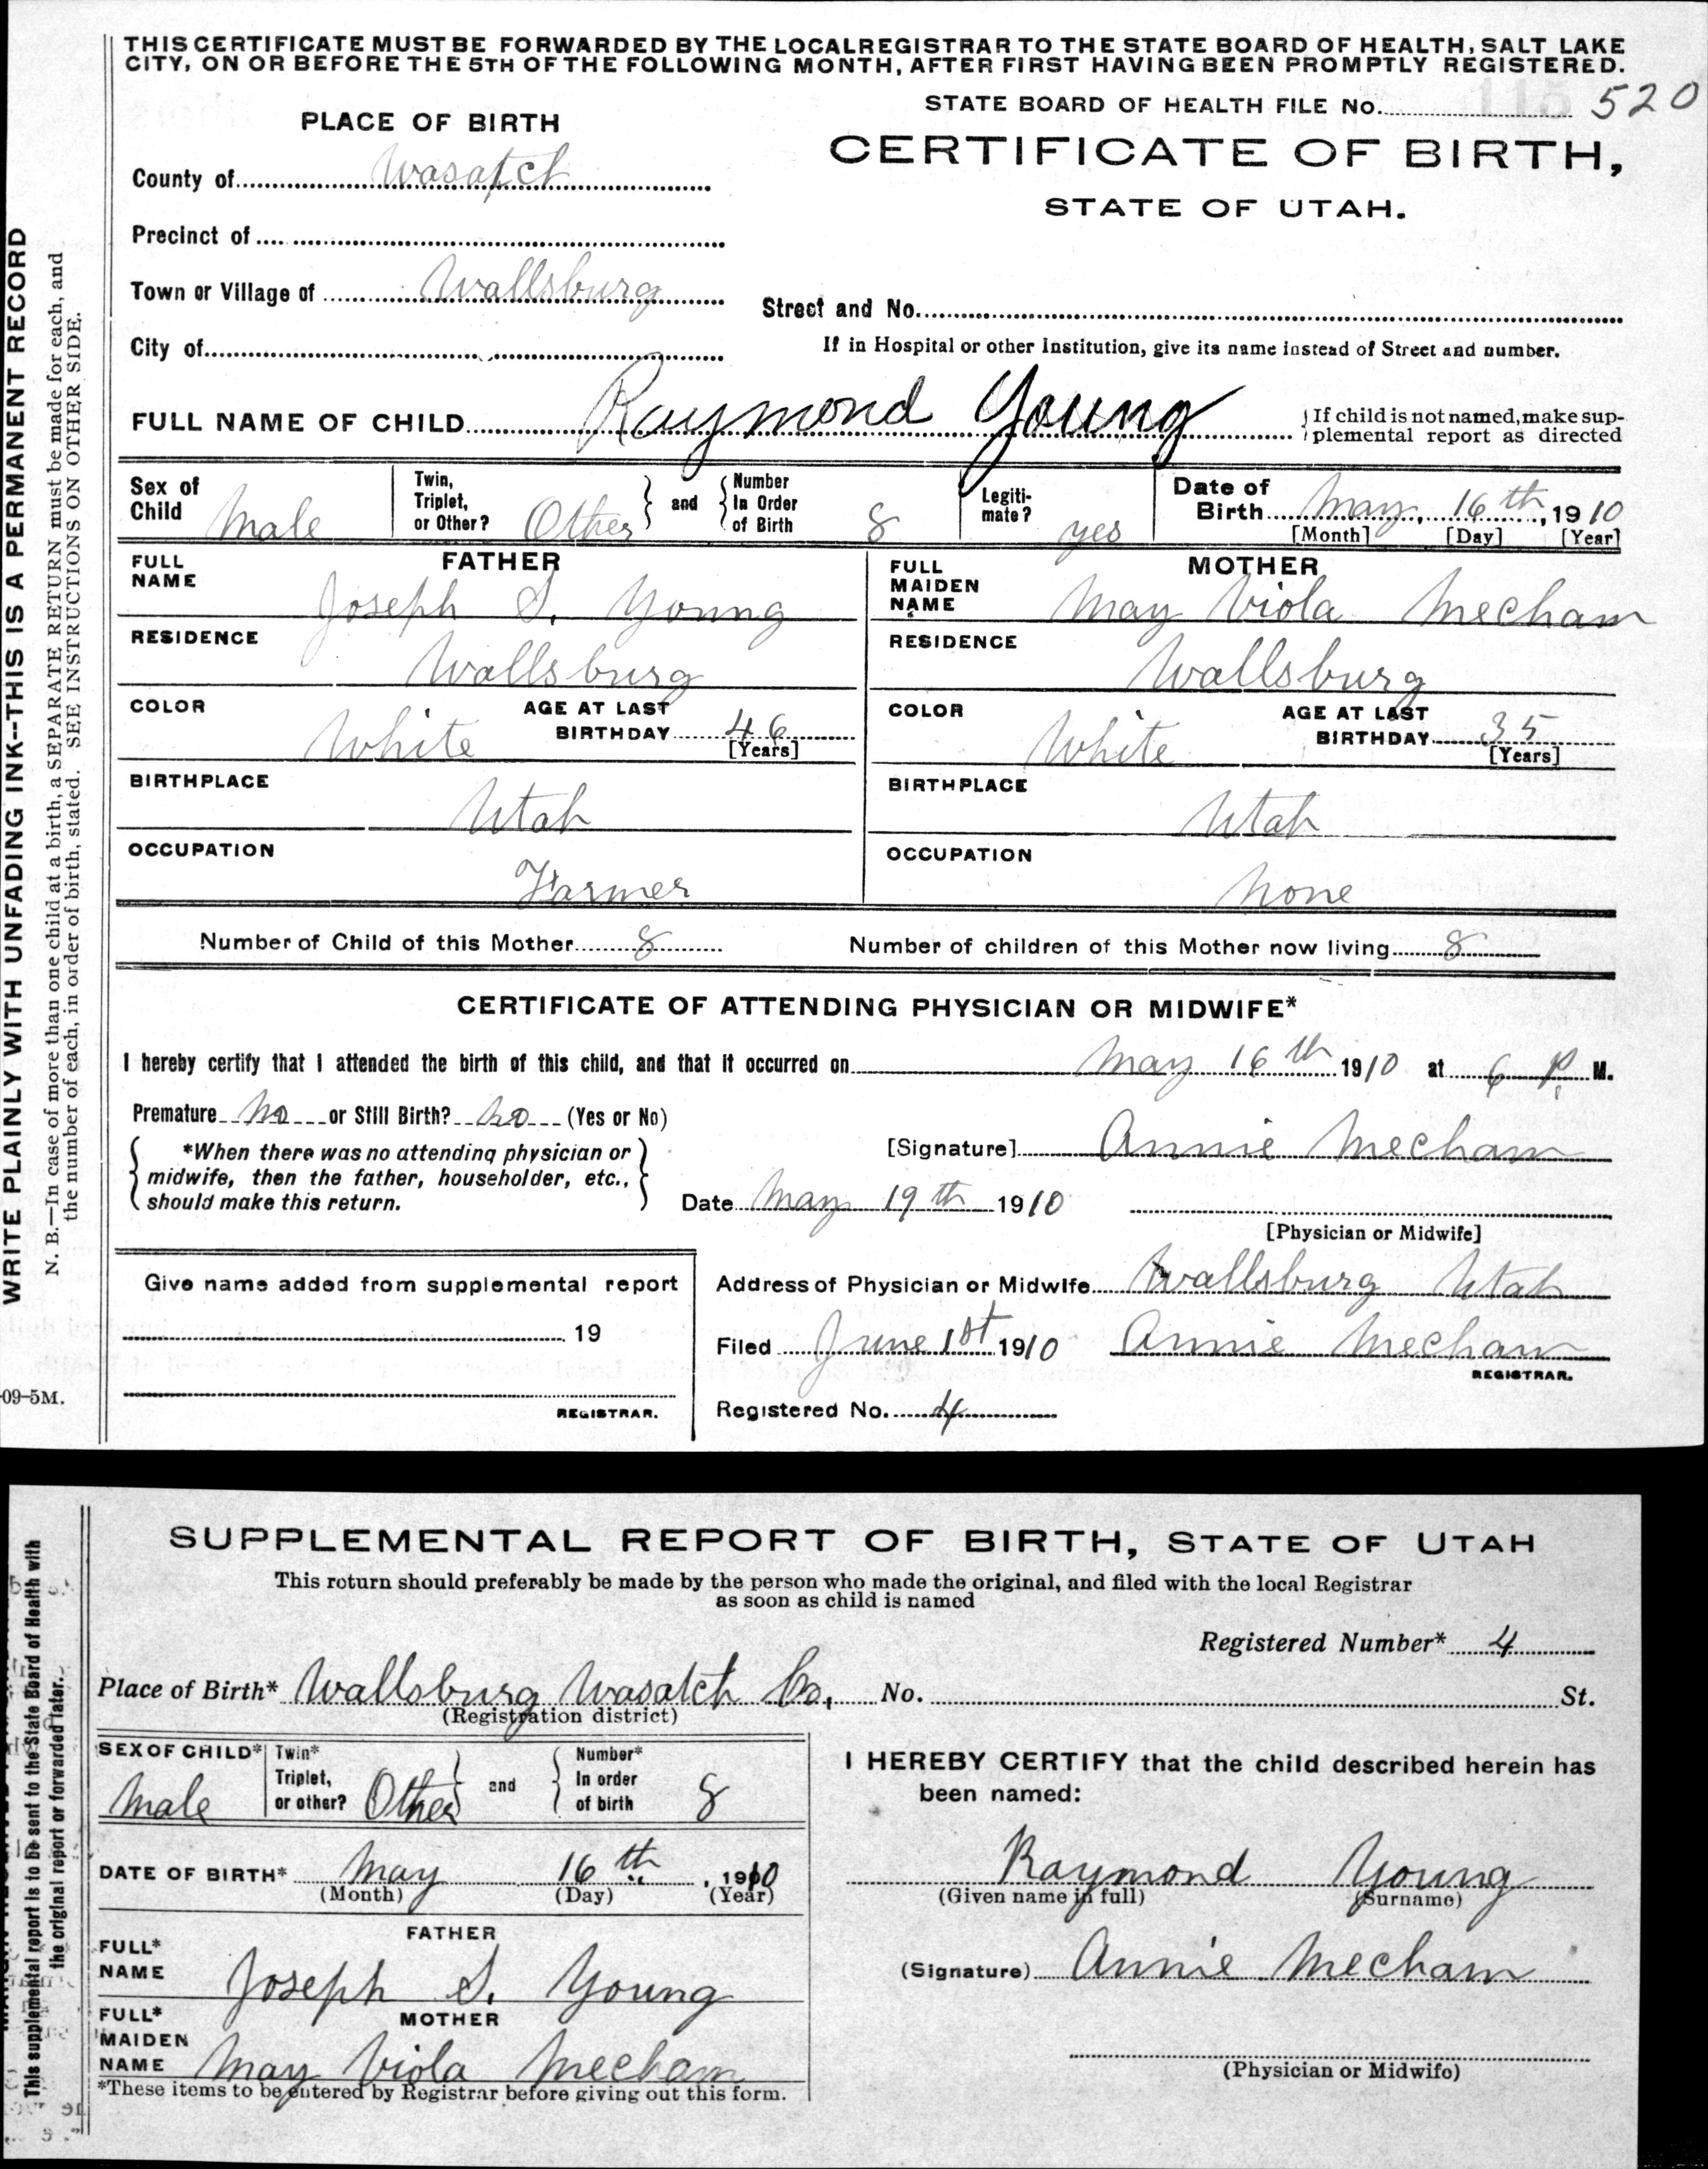 THIS CERTIFICATE MUST BE FORWARDED BY THE LOCAL REGISTRAR TO THE STATE BOARD OF HEALTH, SALT LAKE
CITY, ON OR BEFORE THE 5TH OF THE FOLLOWING MONTH, AFTER FIRST HAVING BEEN PROMPTLY REGISTERED.
STATE BOARD OF HEALTH FILE No. 520
PLACE OF BIRTH
CERTIFICATE OF BIRTH,
STATE OF UTAH.
County of Wasatch
Precinct of
Town or Village of Wallsburg
Street and No.
City of
If in Hospital or other Institution, give its name instead of Street and number.
FULL NAME OF CHILD Raymond Young
If child is not named, make sup-
plemental report as directed
Sex of Child Male
Twin, Triplet, or Other? Other and Number In Order of Birth 8
Legiti-mate? yes
Date of Birth May, 16th, 1910
[Month] [Day] [Year]
FATHER
FULL NAME Joseph S. Young
RESIDENCE Wallsburg
COLOR White AGE AT LAST BIRTHDAY 46 [Years]
BIRTHPLACE Utah
OCCUPATION Farmer
MOTHER
FULL MAIDEN NAME May Viola Mecham
RESIDENCE Wallsburg
COLOR White AGE AT LAST BIRTHDAY 35 [Years]
BIRTHPLACE Utah
OCCUPATION None
Number of Child of this Mother 8 Number of children of this Mother now living 8
CERTIFICATE OF ATTENDING PHYSICIAN OR MIDWIFE*
I hereby certify that I attended the birth of this child, and that it occurred on May 16th 1910 at 6 P. M.
Premature No or Still Birth? No (Yes or No)
*When there was no attending physician or
midwife, then the father, householder, etc.,
should make this return.
[Signature] Annie Mecham
Date May 19th 1910
[Physician or Midwife]
Give name added from supplemental report
19
REGISTRAR.
Address of Physician or Midwife Wallsburg Utah
Filed June 1st 1910 Annie Mecham
REGISTRAR.
Registered No. 4
WRITE PLAINLY WITH UNFADING INK--THIS IS A PERMANENT RECORD
N. B.—In case of more than one child at a birth, a SEPARATE RETURN must be made for each, and
the number of each, in order of birth, stated. SEE INSTRUCTIONS ON OTHER SIDE.
09-5M.
SUPPLEMENTAL REPORT OF BIRTH, STATE OF UTAH
This return should preferably be made by the person who made the original, and filed with the local Registrar
as soon as child is named
Registered Number* 4
Place of Birth* Wallsburg Wasatch Co. No. St.
(Registration district)
SEX OF CHILD* Male
Twin* Triplet, or other? Other and Number* In order of birth 8
DATE OF BIRTH* May 16th, 1910
(Month) (Day) (Year)
FATHER
FULL* NAME Joseph S. Young
MOTHER
FULL* MAIDEN NAME May Viola Mecham
*These items to be entered by Registrar before giving out this form.
I HEREBY CERTIFY that the child described herein has
been named:
Raymond Young
(Given name in full) (Surname)
(Signature) Annie Mecham
(Physician or Midwife)
This supplemental report is to be sent to the State Board of Health with
the original report or forwarded later.